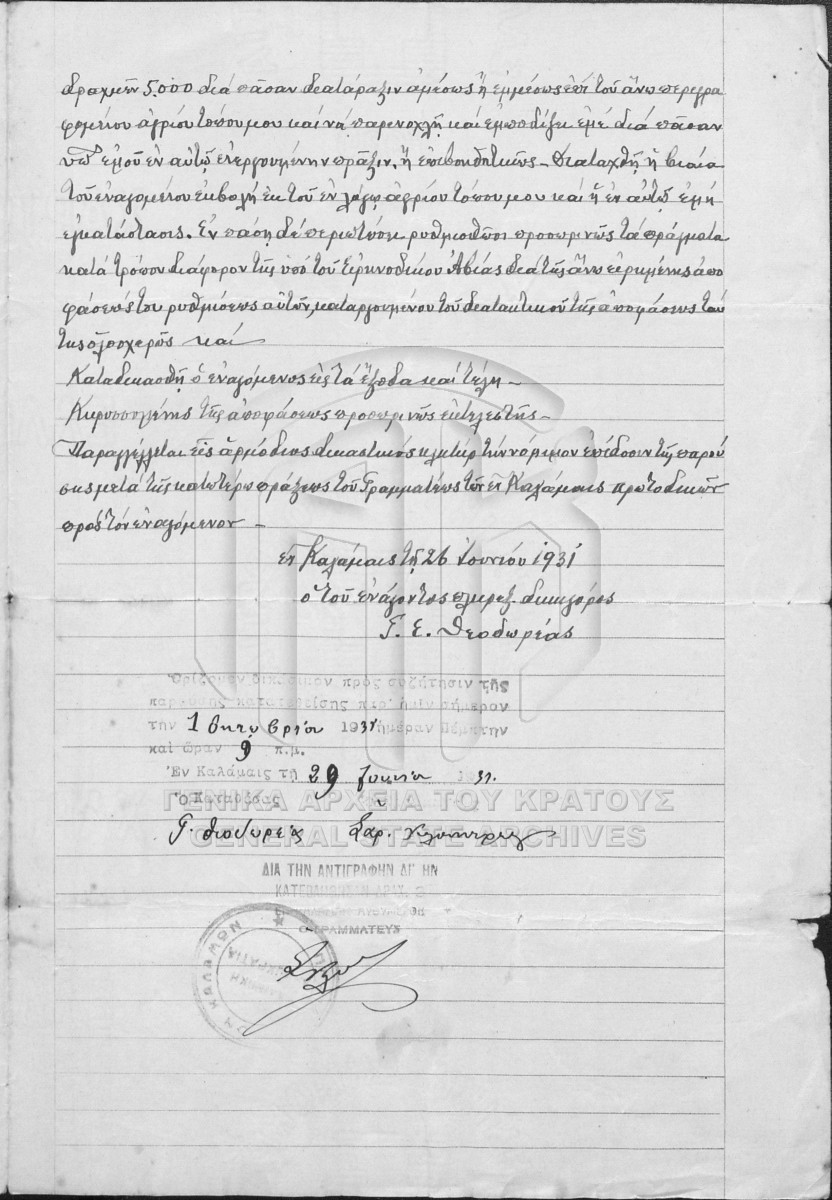 δραχμῶν 5.000 διά πᾶσαν διατάραξιν ἀμέσως ἤ ἐμμέσως ἐπί τοῦ ἄνω περιγρα
φομένου ἀγρίου τόπου μου καί νά παρενοχλῇ καί ἐμποδίζῃ ἐμέ διά πᾶσαν
ὑπ' ἐμοῦ ἐν αὐτῷ ἐνεργουμένην πρᾶξιν, ἤ ἐπιβοηθητικῶς – Διαταχθῇ ἡ βιαία
τοῦ ἐναγομένου ἐκβολή ἐκ τοῦ ἐν λόγῳ ἀγρίου τόπου μου καί ἡ ἐν αὐτῷ ἐμή
ἐγκατάστασις. Ἐν πάσῃ δέ περιπτώσει ρυθμισθῶσι προσωρινῶς τά πράγματα
κατά τρόπον διάφορον τῆς ὑπό τοῦ Εἰρηνοδίκου Ἀβίας διά τῆς ἄνω εἰρημένης ἀπο
φάσεώς του ρυθμίσεως αὐτῶν, καταργουμένου τοῦ διατακτικοῦ τῆς ἀποφάσεως ταύ
της ὁλοσχερῶς καί
Καταδικασθῇ ὁ ἐναγόμενος εἰς τά ἔξοδα καί τέλη –
Κηρυσσομένης τῆς ἀποφάσεως προσωρινῶς ἐκτελεστῆς –
Παραγγέλλεται εἷς ἁρμόδιος δικαστικός κλητήρ τήν νόμιμον ἐπίδοσιν τῆς παρού
σης μετά τῆς κατωτέρω πράξεως τοῦ Γραμματέως τῶν ἐν Καλάμαις πρωτοδικῶν
πρός τόν ἐναγόμενον –
ἐν Καλάμαις τῇ 26 Ἰουνίου 1931
ὁ τοῦ ἐνάγοντος πληρεξ. δικηγόρος
Γ. Ε. Θεοδωρέας
Ὁρίζομεν δικάσιμον πρός συζήτησιν τῆς
παρούσης κατατεθείσης παρ' ἡμῖν σήμερον
τήν 1 Οκτωβρίου 1931 ἡμέραν Πέμπτην
καί ὥραν 9 π.μ.
Ἐν Καλάμαις τῇ 29 Ιουνίου 1931.
Ὁ Καταθέσας
Γ. Θεοδωρέας
ΓΕΝΙΚΑ ΑΡΧΕΙΑ ΤΟΥ ΚΡΑΤΟΥΣ
GENERAL STATE ARCHIVES
ΔΙΑ ΤΗΝ ΑΝΤΙΓΡΑΦΗΝ ΔΙ' ΗΝ
ΚΑΤΕΒΛΗΘΗΣΑΝ ΔΡΑΧ.
Ο ΓΡΑΜΜΑΤΕΥΣ